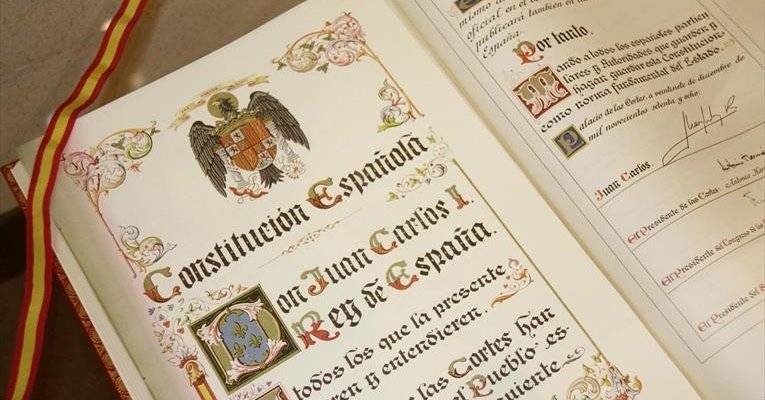 Constitución Española
Don Juan Carlos I.
Rey de España.
todos los que la presente
ren y entendieren.
las Cortes han
Pueblo es
quiente
mismo de
oficial en el
publicará también en
España.
Por tanto.
Mando a todos los españoles, particu
lares y Autoridades que guarden y
hagan guardar esta Constitución
como norma fundamental del Estado.
Palacio de las Cortes, a veintisiete de diciembre de
mil novecientos setenta y ocho.
Juan Carlos
El Presidente de las Cortes
El Presidente del Congreso
El Presidente del